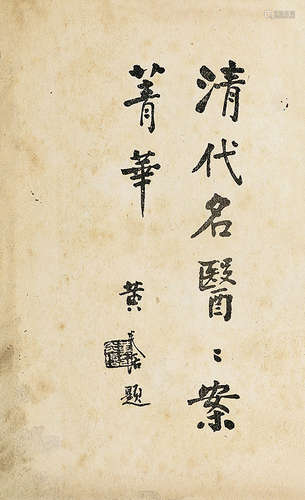 清代名醫〻案
菁華
黄
題